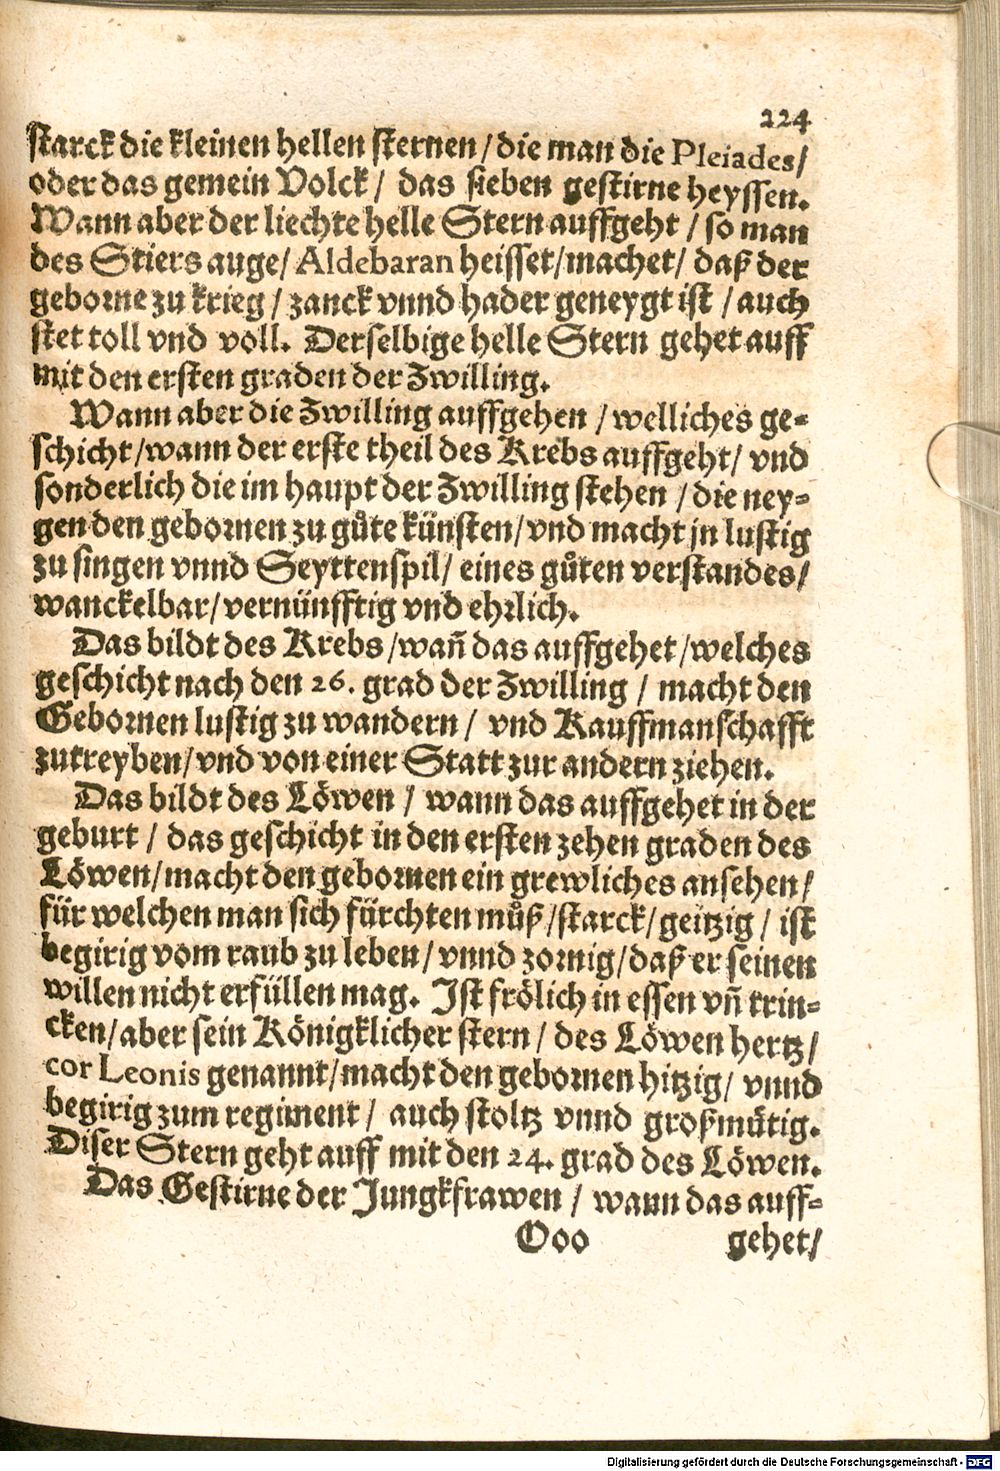 224
starck die kleinen hellen sternen / die man die Pleiades /
oder das gemein Volck / das sieben gestirne heyssen.
Wann aber der liechte helle Stern auffgeht / so man
des Stiers auge / Aldebaran heisset / machet / daß der
geborne zu krieg / zanck vnnd hader geneygt ist / auch
stet toll vnd voll. Derselbige helle Stern gehet auff
mit den ersten graden der Zwilling.
Wann aber die Zwilling auffgehen / welliches ge=
schicht / wann der erste theil des Krebs auffgeht / vnd
sonderlich die im haupt der Zwilling stehen / die ney=
gen den gebornen zu gůte künsten / vnd macht jn lustig
zu singen vnnd Seyttenspil / eines gůten verstandes /
wanckelbar / vernünfftig vnd ehrlich.
Das bildt des Krebs / wañ das auffgehet / welches
geschicht nach den 26. grad der Zwilling / macht den
Gebornen lustig zu wandern / vnd Kauffmanschafft
zutreyben / vnd von einer Statt zur andern ziehen.
Das bildt des Löwen / wann das auffgehet in der
geburt / das geschicht in den ersten zehen graden des
Löwen / macht den gebornen ein grewliches ansehen /
für welchen man sich fürchten můß / starck / geitzig / ist
begirig vom raub zu leben / vnnd zornig / daß er seinen
willen nicht erfüllen mag. Ist frölich in essen vñ trin=
cken / aber sein Königklicher stern / des Löwen hertz /
cor Leonis genannt / macht den gebornen hitzig / vnnd
begirig zum regiment / auch stoltz vnnd großmütig.
Diser Stern geht auff mit den 24. grad des Löwen.
Das Gestirne der Jungkfrawen / wann das auff=
Ooo gehet /
Digitalisierung gefördert durch die Deutsche Forschungsgemeinschaft - DFG